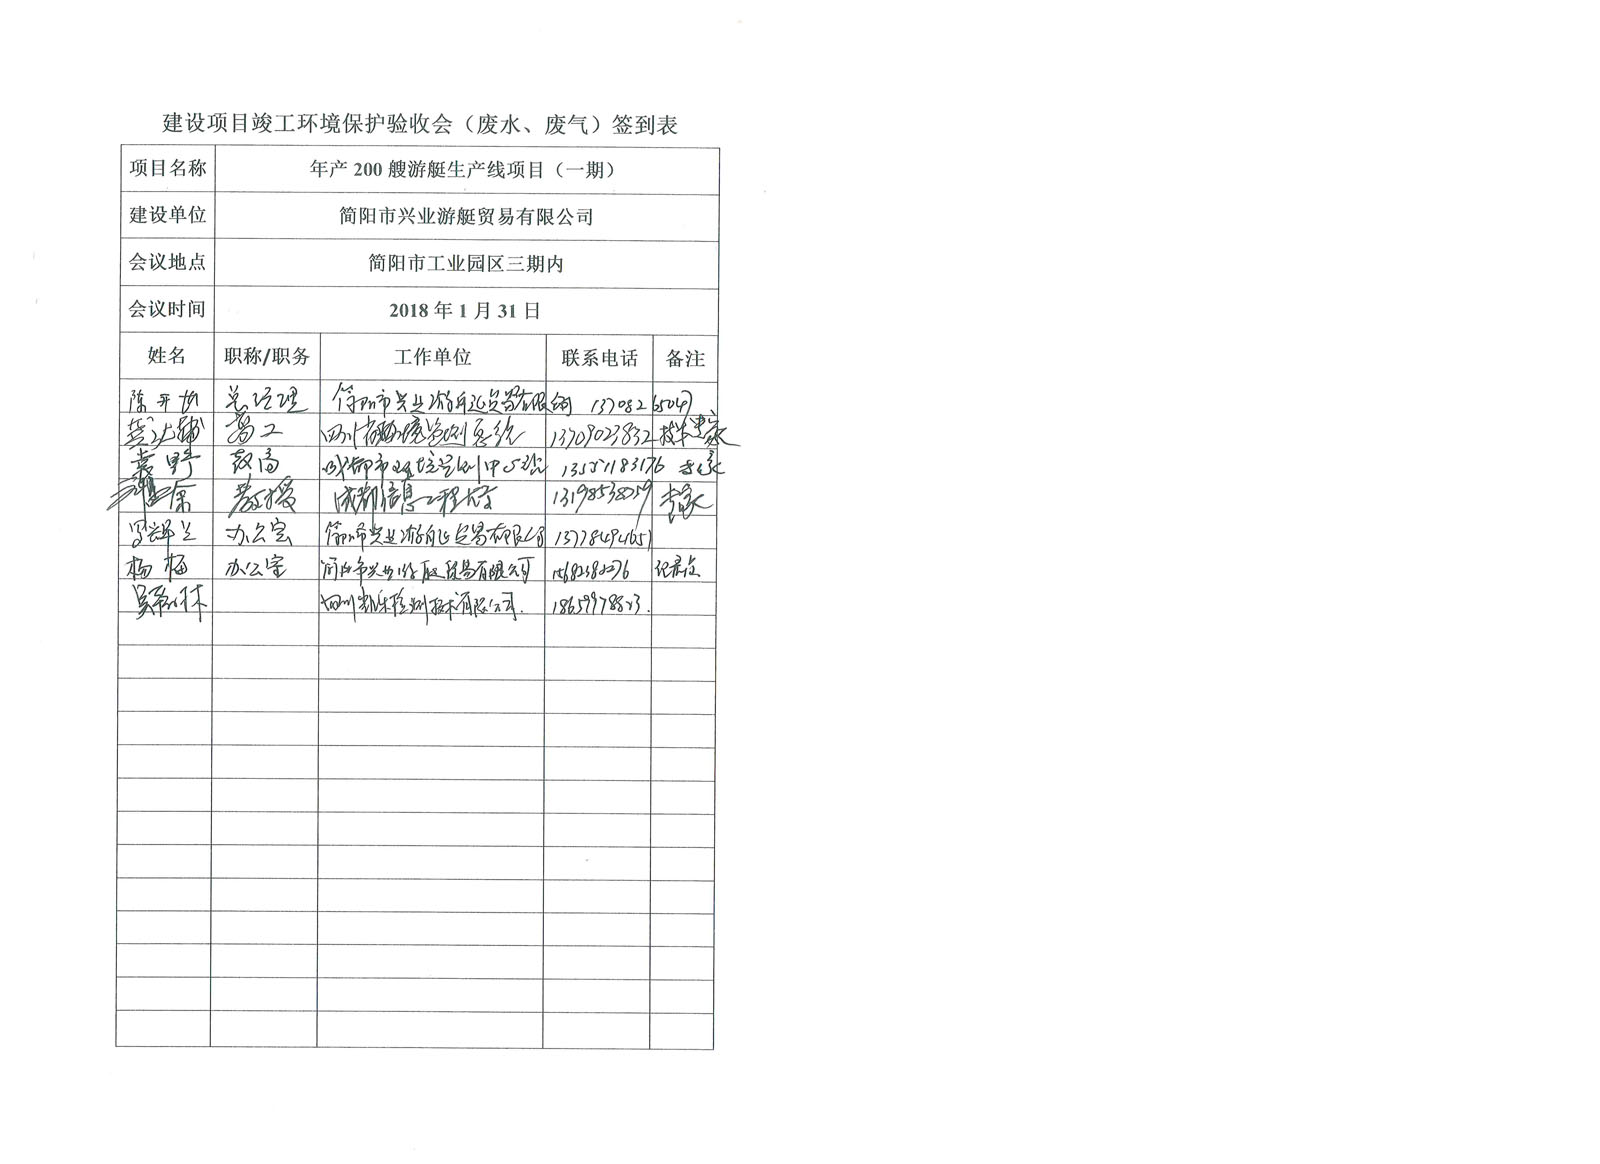 建设项目竣工环境保护验收会（废水、废气）签到表
项目名称 年产 200 艘游艇生产线项目（一期）
建设单位 简阳市兴业游艇贸易有限公司
会议地点 简阳市工业园区三期内
会议时间 2018 年 1 月 31 日
姓名 职称/职务 工作单位 联系电话 备注
陈 总经理 简阳市兴业游艇贸易有限公司
高工 13709023832 技术专家
袁野 教高 成都市环境监测中心站 13551183176 专家
教授 成都信息工程大学 13198538059 专家
办公室 简阳市兴业游艇贸易有限公司 13778494651
杨梅 办公室 简阳市兴业游艇贸易有限公司 15682382276 记录员
林 四川 检测技术有限公司.